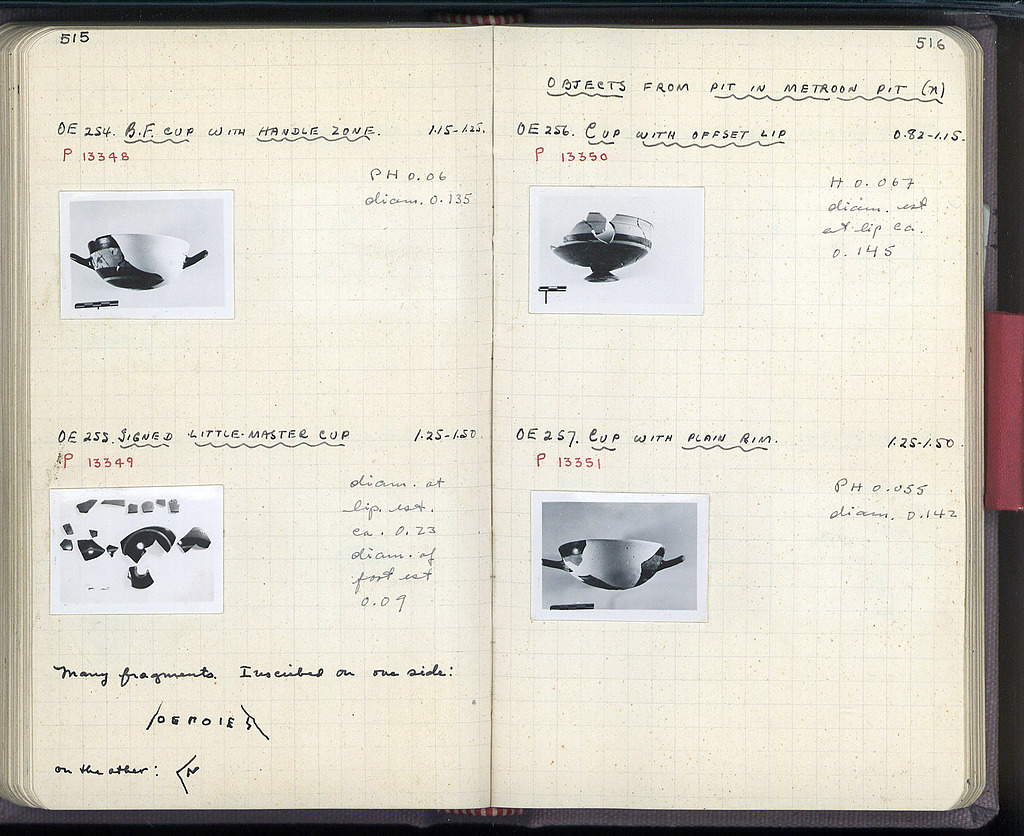 515
OE 254. B.F. CUP WITH HANDLE ZONE. 1.15-1.25.
P 13348
PH 0.06
diam. 0.135
OE 255. SIGNED LITTLE-MASTER CUP 1.25-1.50.
P 13349
diam. at
lip. est.
ca. 0.23
diam. of
foot est
0.09
Many fragments. Inscribed on one side:
on the other:
516
OBJECTS FROM PIT IN METROON PIT (π)
OE 256. CUP WITH OFFSET LIP 0.82-1.15.
P 13350
H 0.067
diam. est
at lip ca.
0.145
OE 257. CUP WITH PLAIN RIM. 1.25-1.50.
P 13351
PH 0.055
diam. 0.142